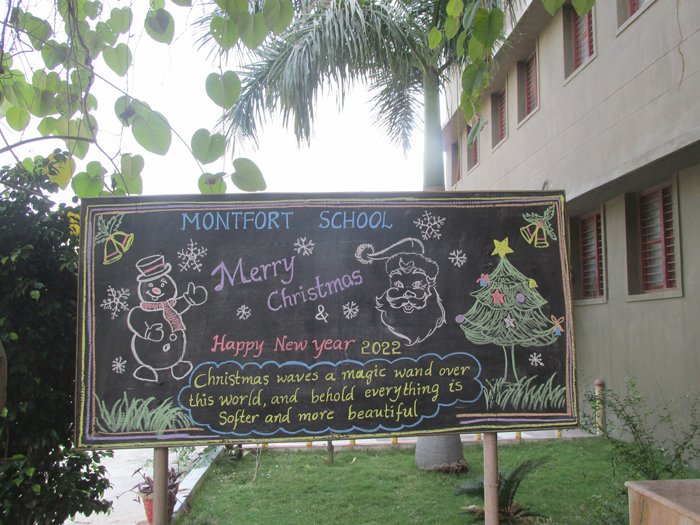 MONTFORT SCHOOL
Merry
Christmas
&
Happy New year 2022
Christmas waves a magic wand over
this world, and behold everything is
Softer and more beautiful